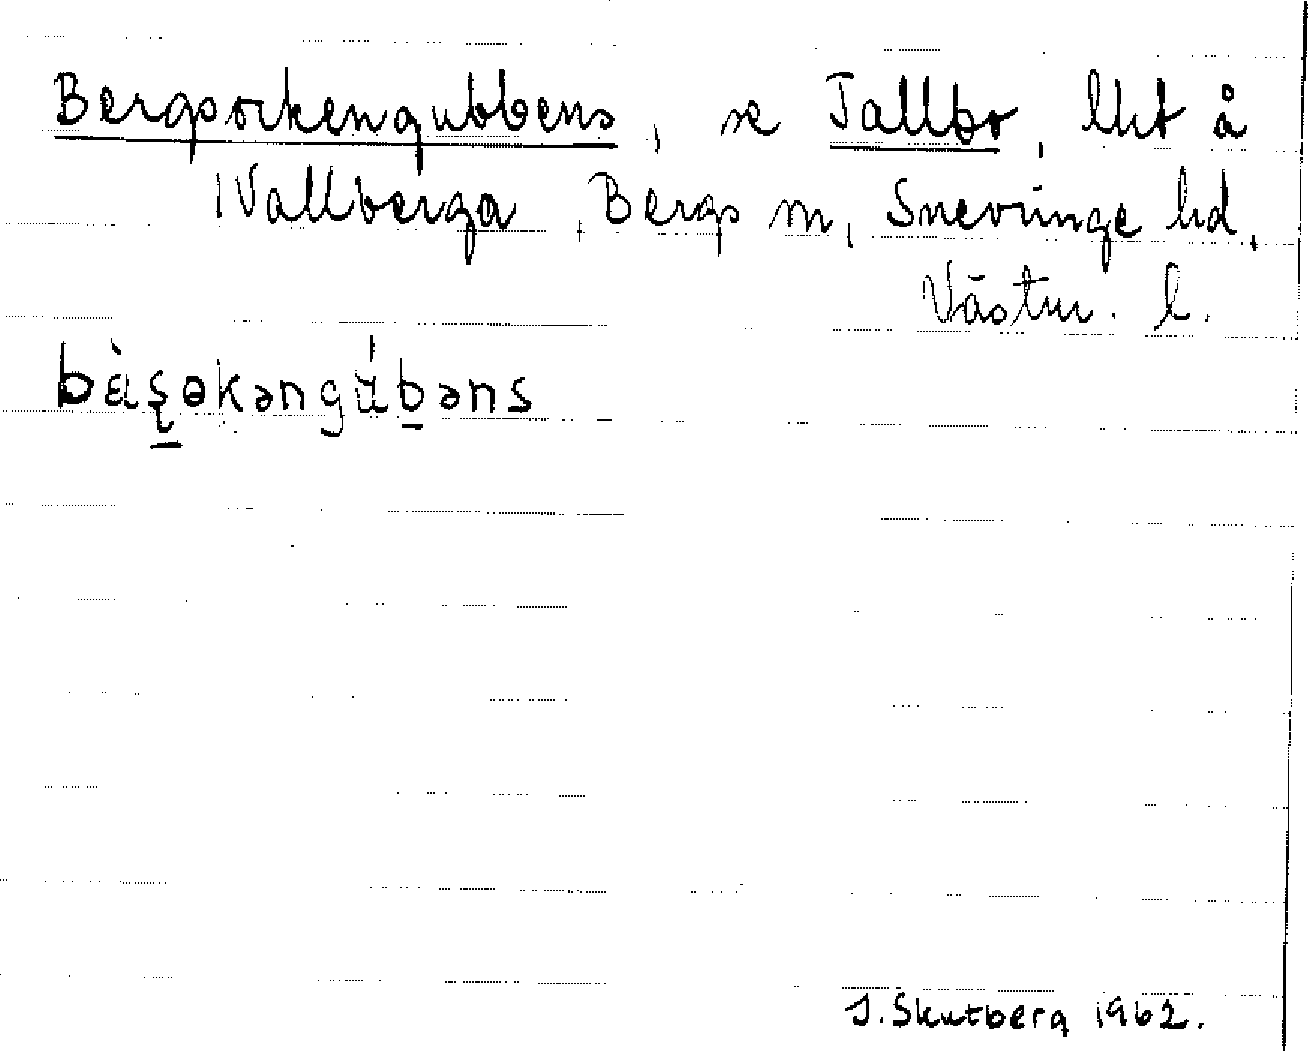 Bergsockengubbens, se Tallbo, lht å
Vallberga, Bergs sn, Snevringe hd,
Västm. l.
bàs̱økəngúḇəns
J. Skutberg 1962.